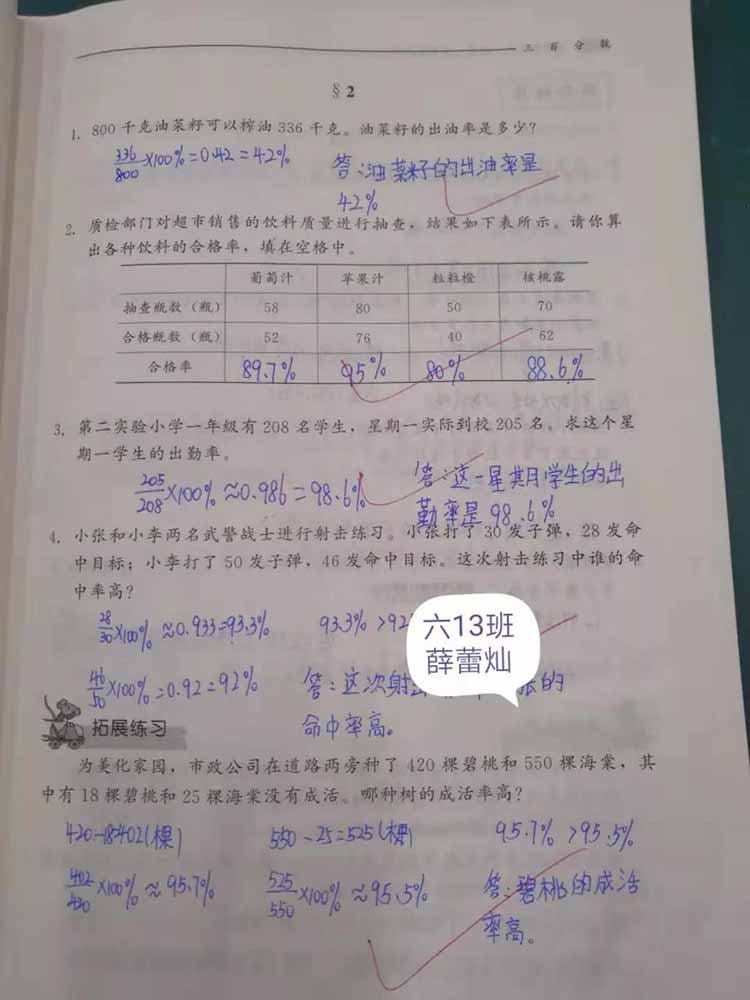 三 百 分 数
§2
1. 800 千克油菜籽可以榨油 336 千克。油菜籽的出油率是多少?
336/800×100%=0.42=42% 答:油菜籽的出油率是
42%
2. 质检部门对超市销售的饮料质量进行抽查,结果如下表所示。请你算
出各种饮料的合格率,填在空格中。
葡萄汁 苹果汁 粒粒橙 核桃露
抽查瓶数(瓶) 58 80 50 70
合格瓶数(瓶) 52 76 40 62
合格率 89.7% 95% 80% 88.6%
3. 第二实验小学一年级有 208 名学生,星期一实际到校 205 名。求这个星
期一学生的出勤率。
205/208×100%≈0.986=98.6% 答:这一星期学生的出
勤率是98.6%
4. 小张和小李两名武警战士进行射击练习。小张打了 30 发子弹,28 发命
中目标;小李打了 50 发子弹,46 发命中目标。这次射击练习中谁的命
中率高?
28/30×100%≈0.933=93.3% 93.3%>92
六13班
薛蕾灿
46/50×100%=0.92=92% 答:这次射 张的
命中率高。
拓展练习
为美化家园,市政公司在道路两旁种了 420 棵碧桃和 550 棵海棠,其
中有 18 棵碧桃和 25 棵海棠没有成活。哪种树的成活率高?
420-18=402(棵) 550-25=525(棵) 95.7%>95.5%
402/420×100%≈95.7% 525/550×100%≈95.5% 答:碧桃的成活
率高。